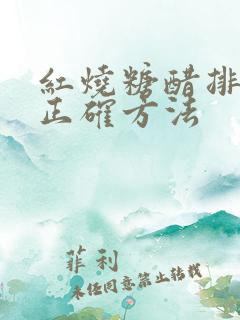 紅燒糖醋排
正確方法
菲利
未經同意禁止轉載